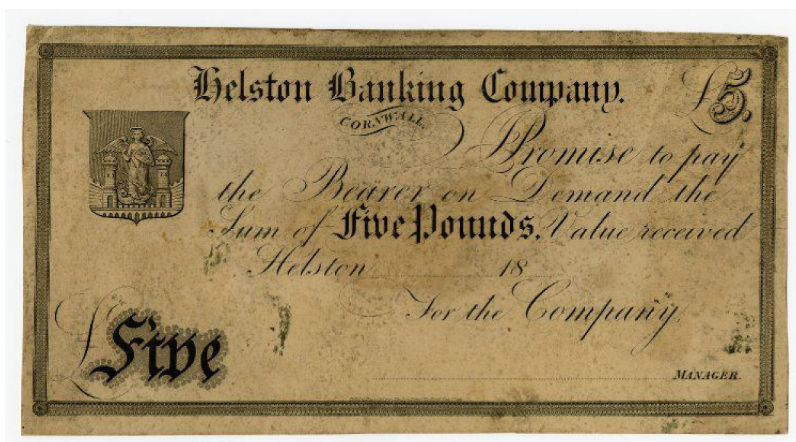 Helston Banking Company.
CORNWALL
£5.
Promise to pay
the Bearer on Demand the
Sum of Five Pounds. Value received
Helston 18
For the Company,
£Five
MANAGER.